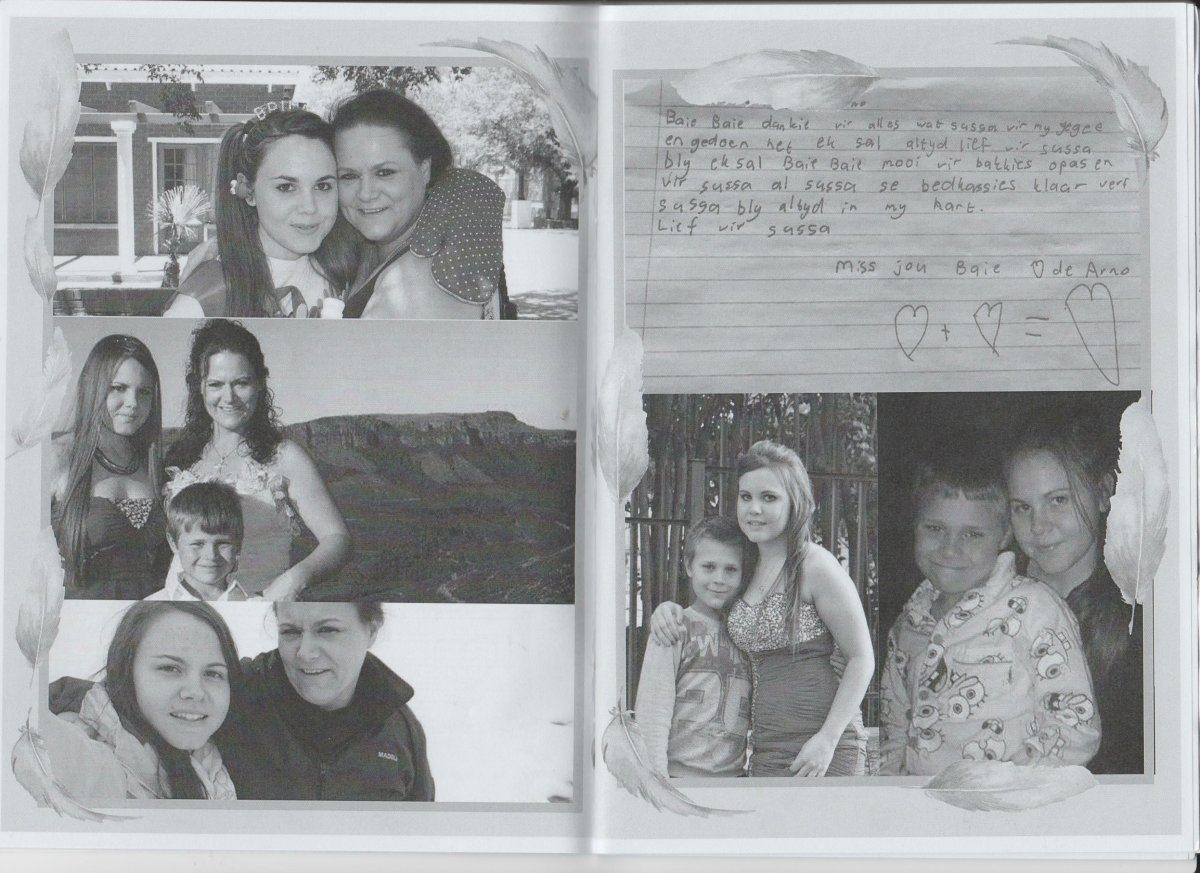 Baie Baie dankie vir alles wat sussa vir my gegee
en gedoen het ek sal altyd lief vir sussa
bly ek sal Baie Baie mooi vir bakkies opas en
vir sussa al sussa se bedkassies klaar verf
sussa bly altyd in my hart.
Lief vir sussa
Miss jou Baie ♡ de Arno
♡ + ♡ = ♡